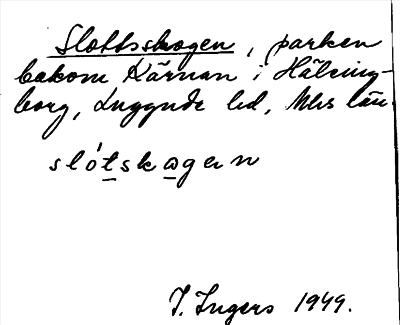 Slottsskogen, parken
bakom Kärnan i Hälsing-
borg, Luggude hd, Mhs län.
slótskagen
I. Ingers 1949.